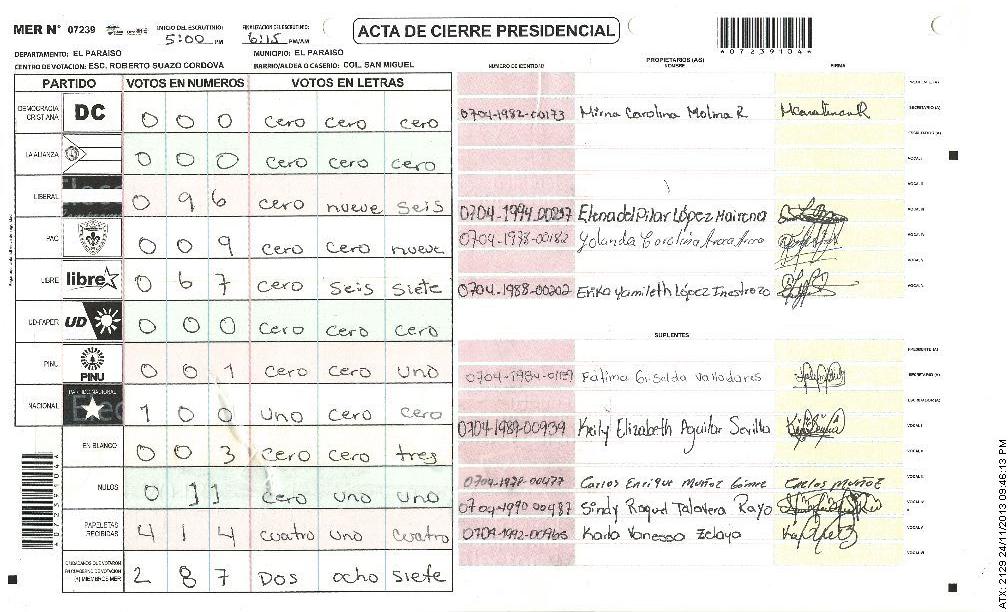 MER N° 07239 INICIO DEL ESCRUTINIO: 5:00 PM FINALIZACION DEL ESCRUTINIO: 6:15 PM/AM ACTA DE CIERRE PRESIDENCIAL
A072391044
DEPARTAMENTO: EL PARAISO MUNICIPIO: EL PARAISO
CENTRO DE VOTACION: ESC. ROBERTO SUAZO CORDOVA BARRIO/ALDEA O CASERIO: COL. SAN MIGUEL
PARTIDO VOTOS EN NUMEROS VOTOS EN LETRAS
DEMOCRACIA CRISTIANA DC 0 0 0 cero cero cero
LA ALIANZA 0 0 0 cero cero cero
LIBERAL 0 9 6 cero nueve seis
PAC 0 0 9 cero cero nueve
LIBRE libre 0 6 7 cero seis siete
UD-FAPER UD 0 0 0 cero cero cero
PINU PINU 0 0 1 cero cero uno
NACIONAL PARTIDO NACIONAL 1 0 0 uno cero cero
EN BLANCO 0 0 3 cero cero tres
NULOS 0 1 1 cero uno uno
PAPELETAS RECIBIDAS 4 1 4 cuatro uno cuatro
CIUDADANOS QUE VOTARON EN CUADERNO DE VOTACION (+) MIEMBROS MER 2 8 7 Dos ocho siete
PROPIETARIOS (AS)
NUMERO DE IDENTIDAD NOMBRE FIRMA
SECRETARIO (A)
0704-1982-00173 Mirna Carolina Molina R
ESCRUTADOR (A)
VOCAL I
VOCAL II
VOCAL III
0704-1994-00237 Elena del Pilar López Mairena
0704-1978-00182 Yolanda Carolina
VOCAL IV
VOCAL V
0704-1988-00202 Erika Yamileth López Inestroza
SUPLENTES
PRESIDENTE (A)
SECRETARIO (A)
Fatima Griselda Valladares
ESCRUTADOR (A)
0704-1989-00939 Keily Elizabeth Aguilar Sevilla
VOCAL I
VOCAL II
0704-1978-00477 Carlos Enrique Muñoz Gómez Carlos Muñoz
VOCAL III
0704-1990 00487 Sindy Raquel Talavera Rayo
VOCAL IV
0704-1992-00965 Karla Vanessa Zelaya
VOCAL V
VOCAL VI
A072391044
ATX: 2129 24/11/2013 09:46:13 PM